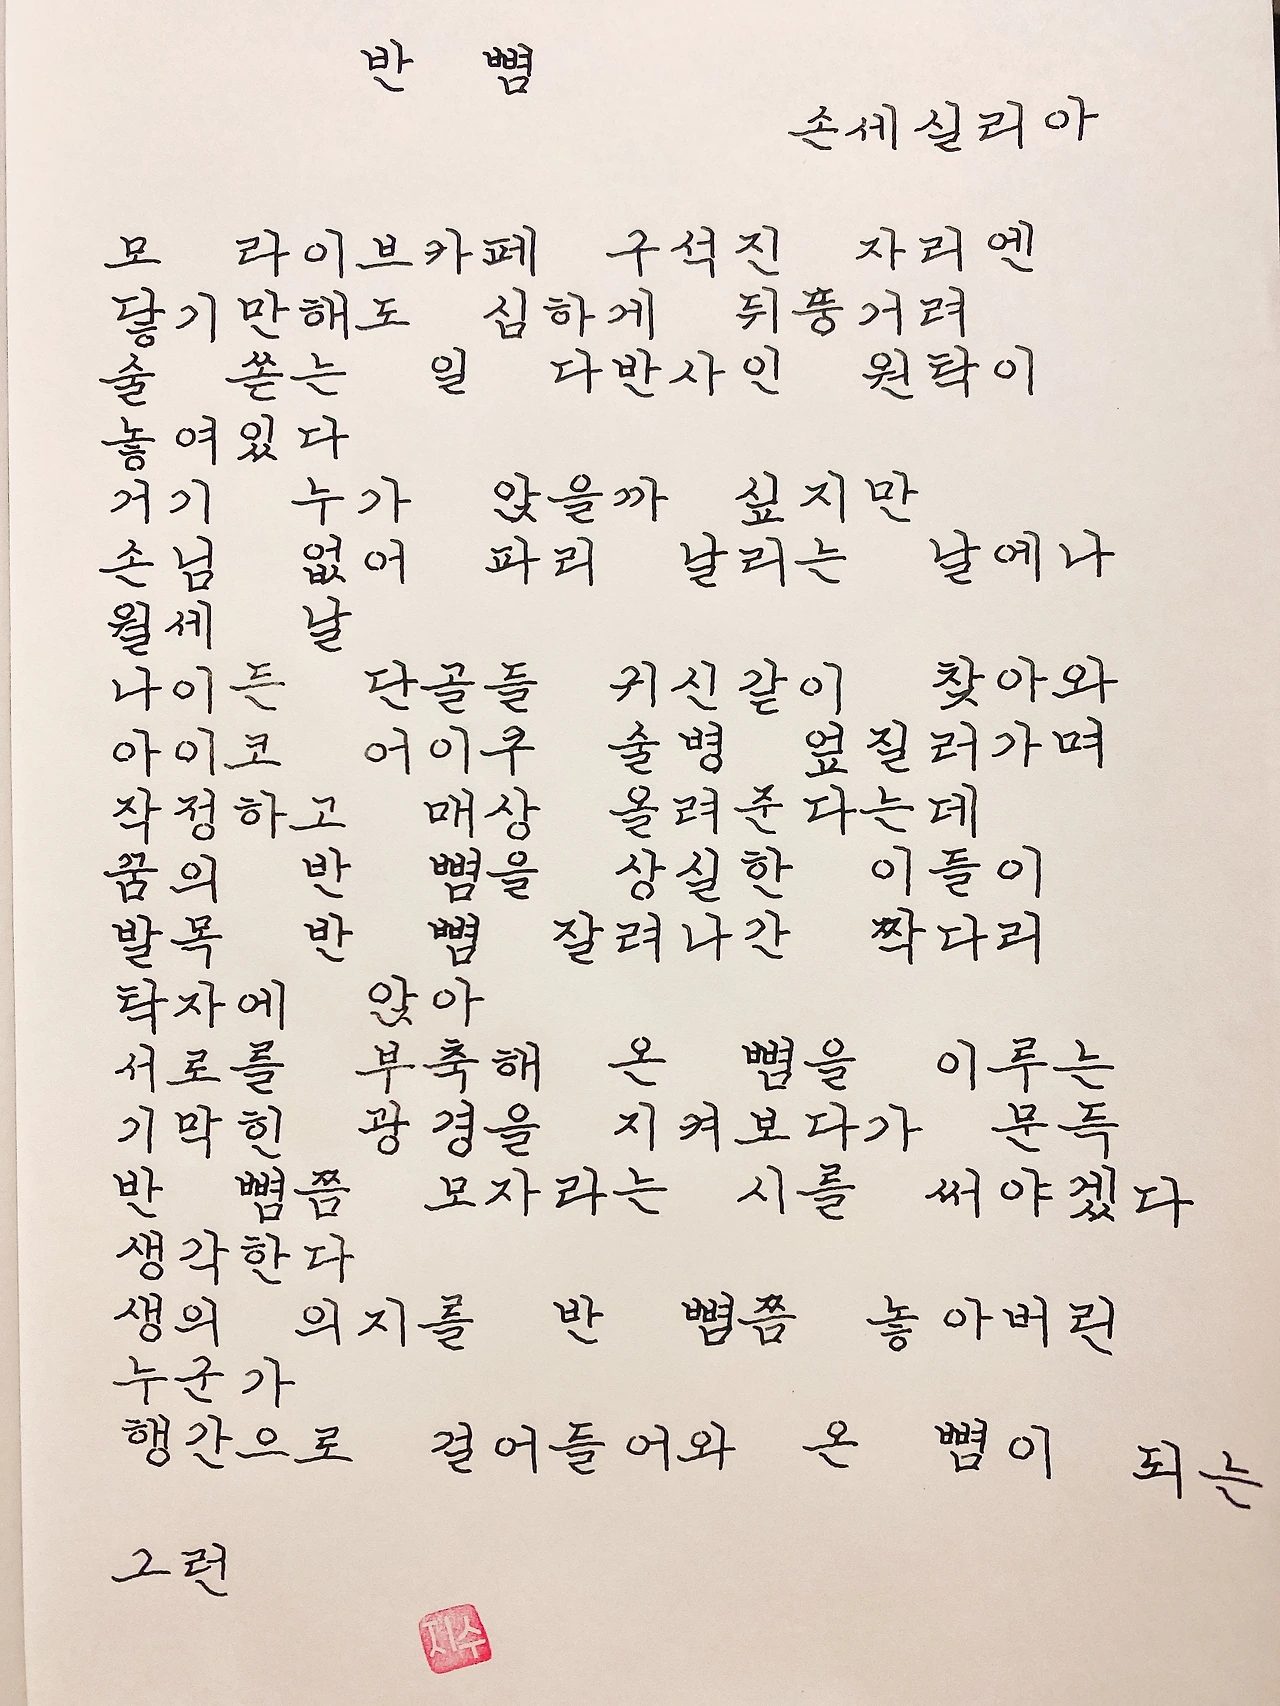 반 뼘
손세실리아
모 라이브카페 구석진 자리엔
닿기만해도 심하게 뒤풍거려
술 쏟는 일 다반사인 원탁이
놓여있다
거기 누가 앉을까 싶지만
손님 없어 파리 날리는 날에나
월세 날
나이든 단골들 귀신같이 찾아와
아이코 어이쿠 술병 엎질러가며
작정하고 매상 올려준다는데
꿈의 반 뼘을 상실한 이들이
발목 반 뼘 잘려나간 짝다리
탁자에 앉아
서로를 부축해 온 뼘을 이루는
기막힌 광경을 지켜보다가 문득
반 뼘쯤 모자라는 시를 써야겠다
생각한다
생의 의지를 반 뼘쯤 놓아버린
누군가
행간으로 걸어들어와 온 뼘이 되는
그런
지수